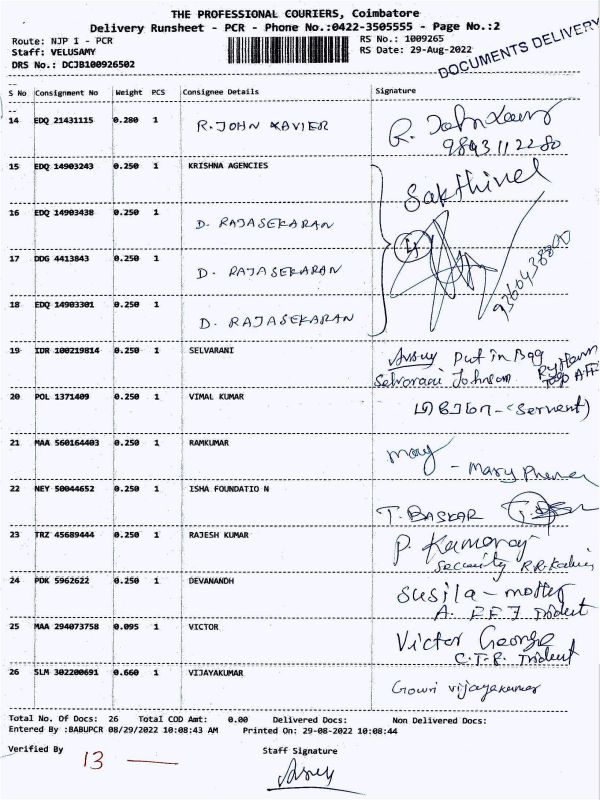 THE PROFESSIONAL COURIERS, Coimbatore
Delivery Runsheet - PCR - Phone No.:0422-3505555 - Page No.:2
Route: NJP I - PCR RS No.: 1009265
Staff: VELUSAMY RS Date: 29-Aug-2022
DRS No.: DCJB100926502 DOCUMENTS DELIVERY
S No Consignment No Weight PCS Consignee Details Signature
14 EDQ 21431115 0.280 1 R. JOHN XAVIER R. John Xavier
9843112280
15 EDQ 14903243 0.250 1 KRISHNA AGENCIES Sakthivel
16 EDQ 14903438 0.250 1 D. RAJASEKARAN 4
17 DDG 4413843 0.250 1 D. RAJASEKARAN
18 EDQ 14903301 0.250 1 D. RAJASEKARAN
19 IDR 100219814 0.250 1 SELVARANI put in Bag
Selvarani Johnson
20 POL 1371409 0.250 1 VIMAL KUMAR (Servent)
21 MAA 560164403 0.250 1 RAMKUMAR Mary
- Mary
22 NEY 50044652 0.250 1 ISHA FOUNDATIO N T. BASKAR
23 TRZ 45689444 0.250 1 RAJESH KUMAR P. Kamaraj
Security
24 PDK 5962622 0.250 1 DEVANANDH Susila - mother
Trident
25 MAA 294073758 0.095 1 VICTOR Victor George
Trident
26 SLM 302200691 0.660 1 VIJAYAKUMAR Gowri Vijayakumar
Total No. Of Docs: 26 Total COD Amt: 0.00 Delivered Docs: Non Delivered Docs:
Entered By :BABUPCR 08/29/2022 10:08:43 AM Printed On: 29-08-2022 10:08:44
Verified By 13 Staff Signature